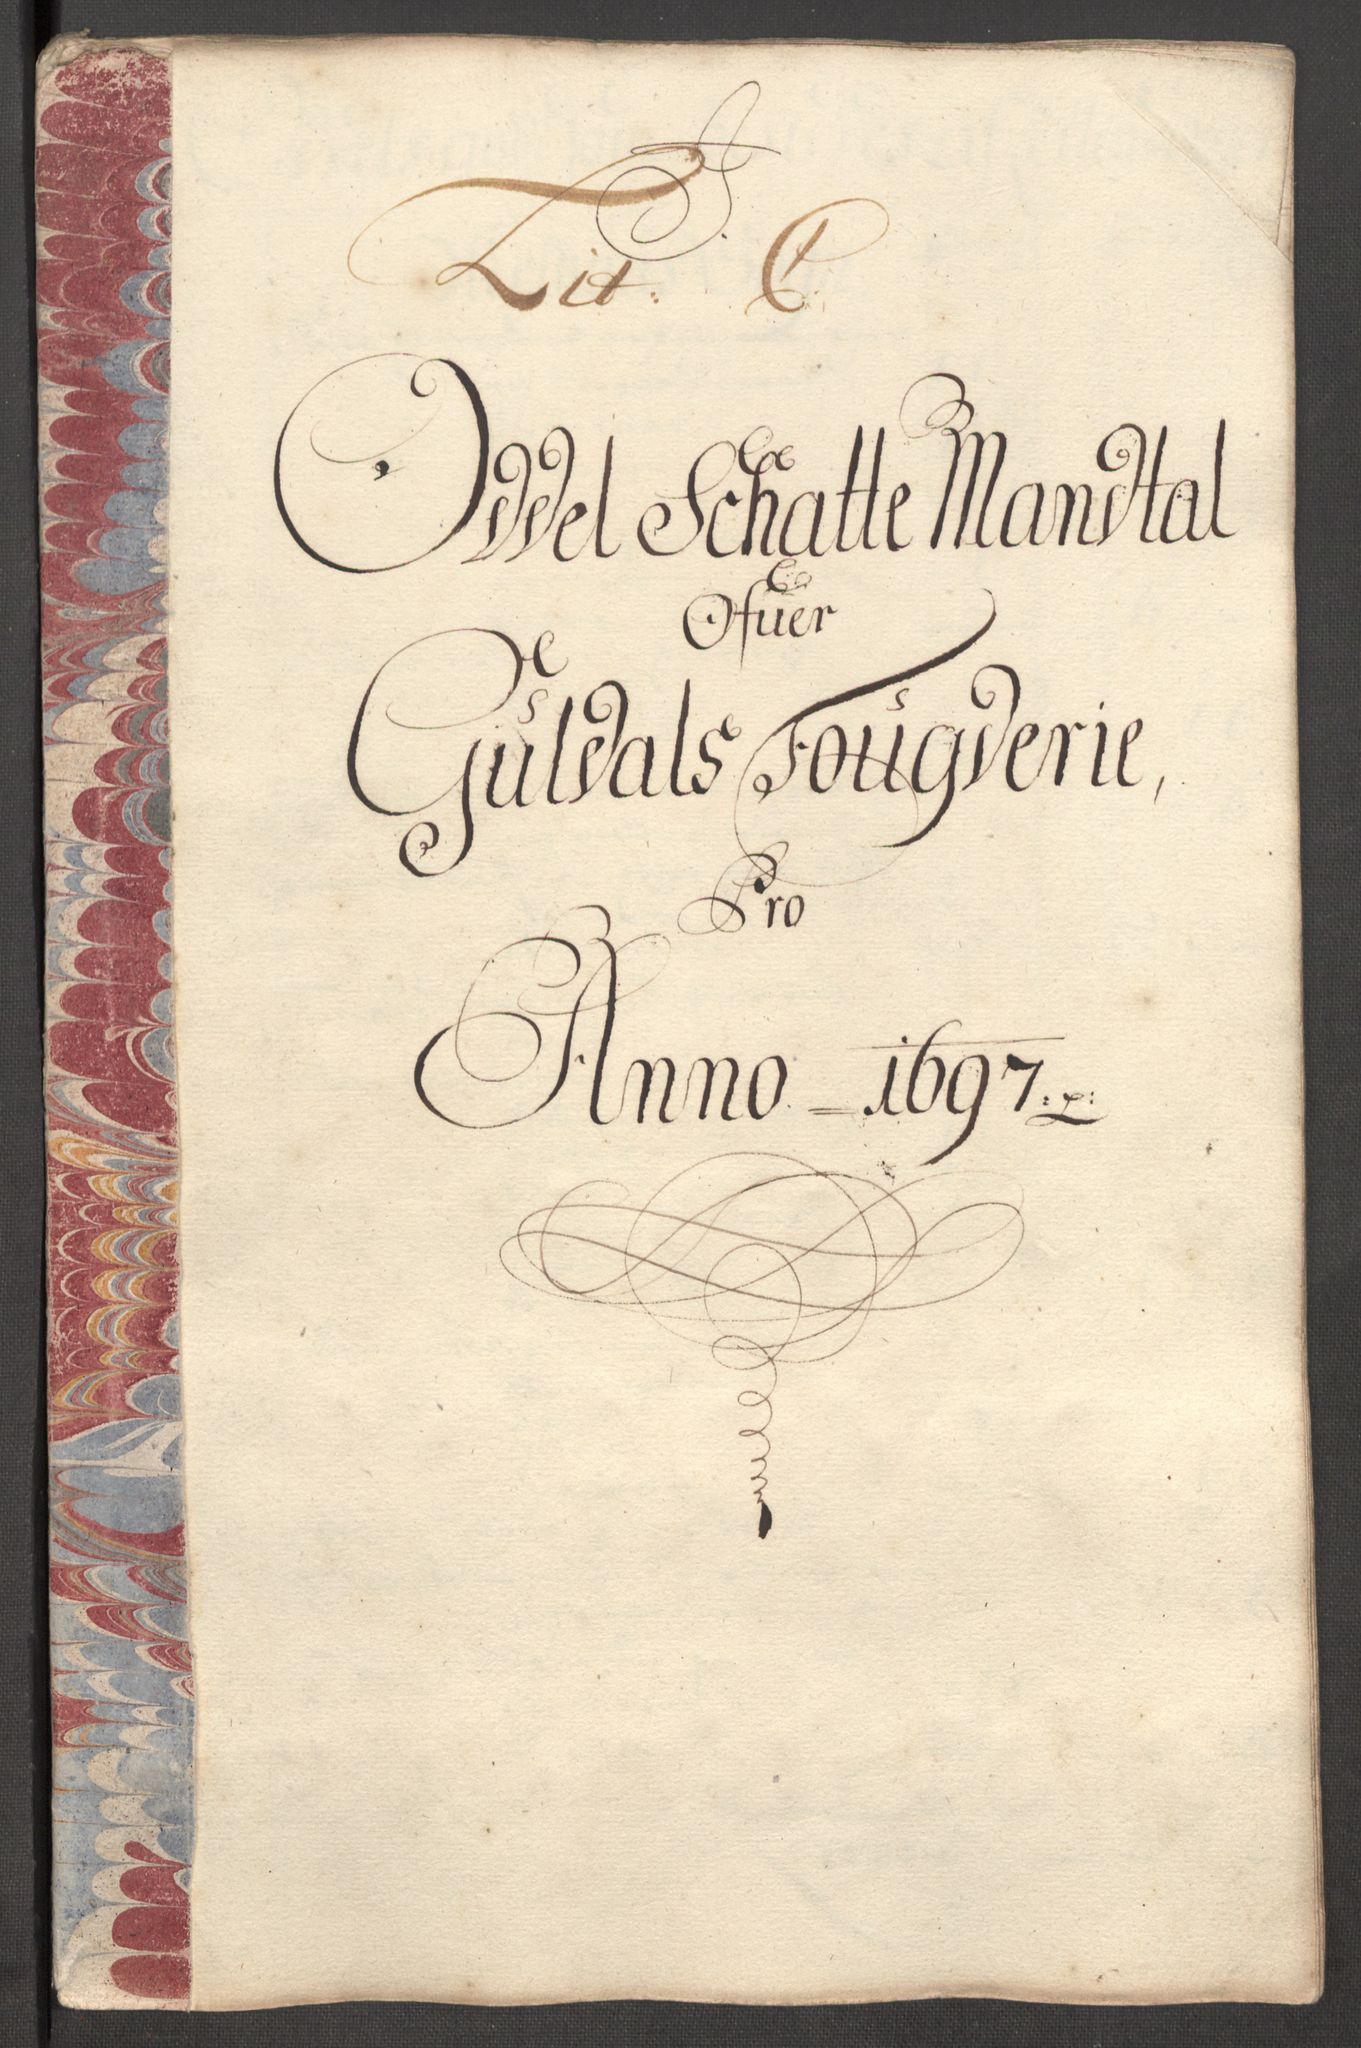 Lit: C
Oddel Schatte Mandtal
Ofuer
Guldals Fougderie,
Pro
Anno 1697